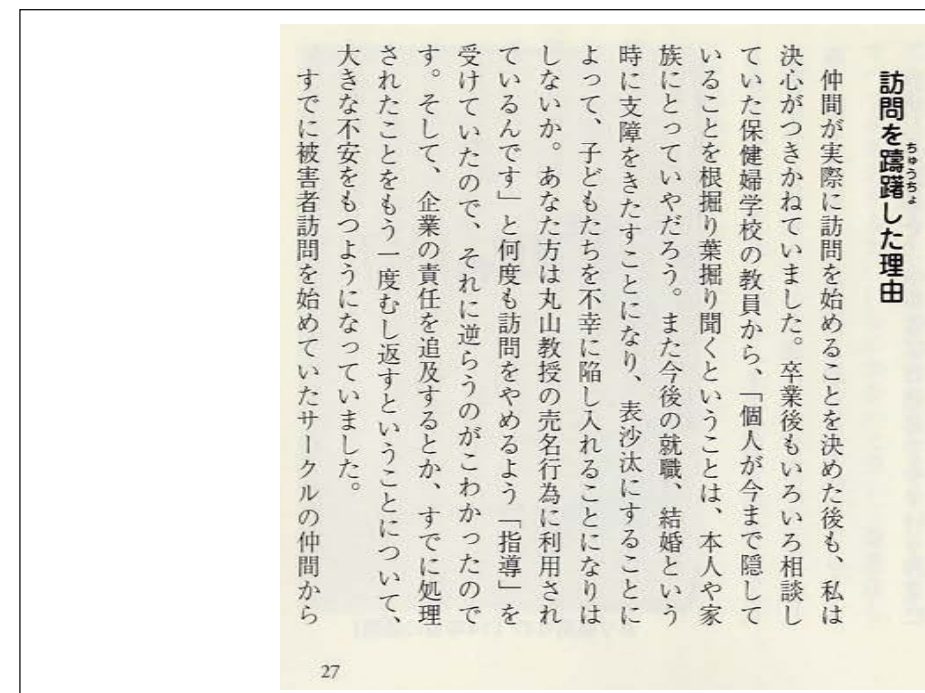 訪問を躊躇した理由
ちゅうちょ
仲間が実際に訪問を始めることを決めた後も、私は
決心がつきかねていました。卒業後もいろいろ相談し
ていた保健婦学校の教員から、「個人が今まで隠して
いることを根掘り葉掘り聞くということは、本人や家
族にとっていやだろう。また今後の就職、結婚という
時に支障をきたすことになり、表沙汰にすることに
よって、子どもたちを不幸に陥し入れることになりは
しないか。あなた方は丸山教授の売名行為に利用され
ているんです」と何度も訪問をやめるよう「指導」を
受けていたので、それに逆らうのがこわかったので
す。そして、企業の責任を追及するとか、すでに処理
されたことをもう一度むし返すということについて、
大きな不安をもつようになっていました。
すでに被害者訪問を始めていたサークルの仲間から
27